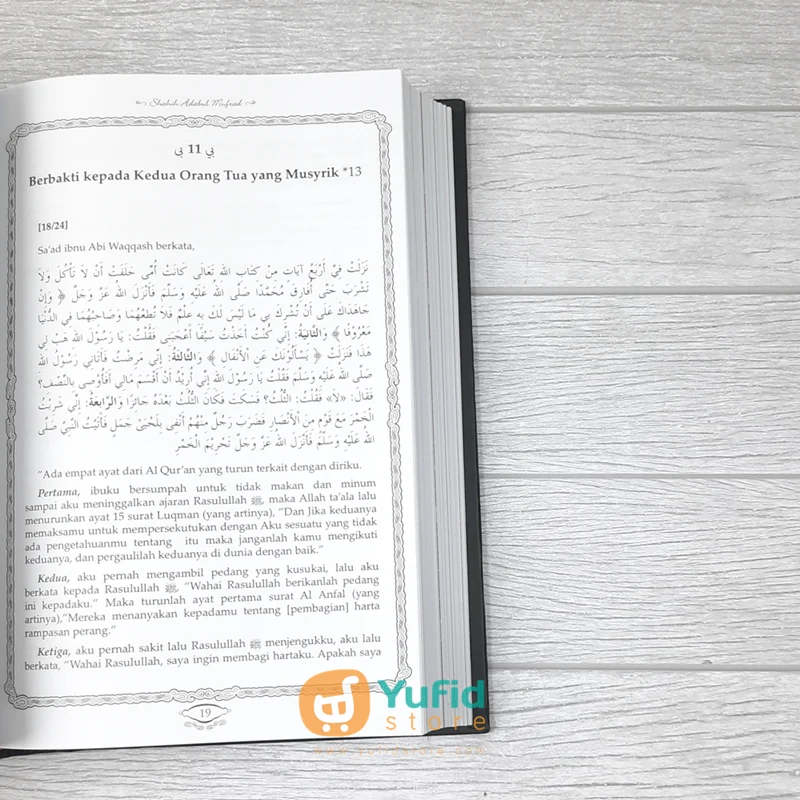 Shahih Adabul Mufrad
بي 11 بى
Berbakti kepada Kedua Orang Tua yang Musyrik *13
[18/24]
Sa'ad ibnu Abi Waqqash berkata,
نَزَلَتْ فِيَّ أَرْبَعُ آيَاتٍ مِنْ كِتَابِ اللهِ تَعَالَى كَانَتْ أُمِّي حَلَفَتْ أَنْ لَا تَأْكُلَ وَلَا
تَشْرَبَ حَتَّى أُفَارِقَ مُحَمَّدًا صَلَّى اللهُ عَلَيْهِ وَسَلَّمَ فَأَنْزَلَ اللهُ عَزَّ وَجَلَّ ﴿ وَإِنْ
جَاهَدَاكَ عَلَى أَنْ تُشْرِكَ بِي مَا لَيْسَ لَكَ بِهِ عِلْمٌ فَلَا تُطِعْهُمَا وَصَاحِبْهُمَا فِي الدُّنْيَا
مَعْرُوفًا ﴾ وَالثَّانِيَةُ: إِنِّي كُنْتُ أَخَذْتُ سَيْفًا أَعْجَبَنِي فَقُلْتُ: يَا رَسُوْلَ اللهِ هَبْ لِي
هَذَا فَنَزَلَتْ ﴿ يَسْأَلُوْنَكَ عَنِ الأَنْفَالِ ﴾ وَالثَّالِثَةُ: إِنِّي مَرِضْتُ فَأَتَانِي رَسُوْلُ اللهِ
صَلَّى اللهُ عَلَيْهِ وَسَلَّمَ فَقُلْتُ يَا رَسُوْلَ اللهِ إِنِّي أُرِيْدُ أَنْ أَقْسِمَ مَالِي أَفَأُوْصِي بِالنِّصْفِ؟
فَقَالَ: «لَا» فَقُلْتُ: الثُّلُثُ؟ فَسَكَتَ فَكَانَ الثُّلُثُ بَعْدَهُ جَائِزًا وَالرَّابِعَةُ: إِنِّي شَرِبْتُ
الْخَمْرَ مَعَ قَوْمٍ مِنَ الأَنْصَارِ فَضَرَبَ رَجُلٌ مِنْهُمْ أَنْفِي بِلَحْيَيْ جَمَلٍ فَأَتَيْتُ النَّبِيَّ صَلَّى
اللهُ عَلَيْهِ وَسَلَّمَ فَأَنْزَلَ اللهُ عَزَّ وَجَلَّ تَحْرِيْمَ الْخَمْرِ
"Ada empat ayat dari Al Qur'an yang turun terkait dengan diriku.
Pertama, ibuku bersumpah untuk tidak makan dan minum
sampai aku meninggalkan ajaran Rasulullah ﷺ, maka Allah ta'ala lalu
menurunkan ayat 15 surat Luqman (yang artinya), "Dan Jika keduanya
memaksamu untuk mempersekutukan dengan Aku sesuatu yang tidak
ada pengetahuanmu tentang itu maka janganlah kamu mengikuti
keduanya, dan pergaulilah keduanya di dunia dengan baik."
Kedua, aku pernah mengambil pedang yang kusukai, lalu aku
berkata kepada Rasulullah ﷺ, "Wahai Rasulullah berikanlah pedang
ini kepadaku." Maka turunlah ayat pertama surat Al Anfal (yang
artinya),"Mereka menanyakan kepadamu tentang [pembagian] harta
rampasan perang."
Ketiga, aku pernah sakit lalu Rasulullah ﷺ menjengukku, aku lalu
berkata, "Wahai Rasulullah, saya ingin membagi hartaku. Apakah saya
19
Yufid
store